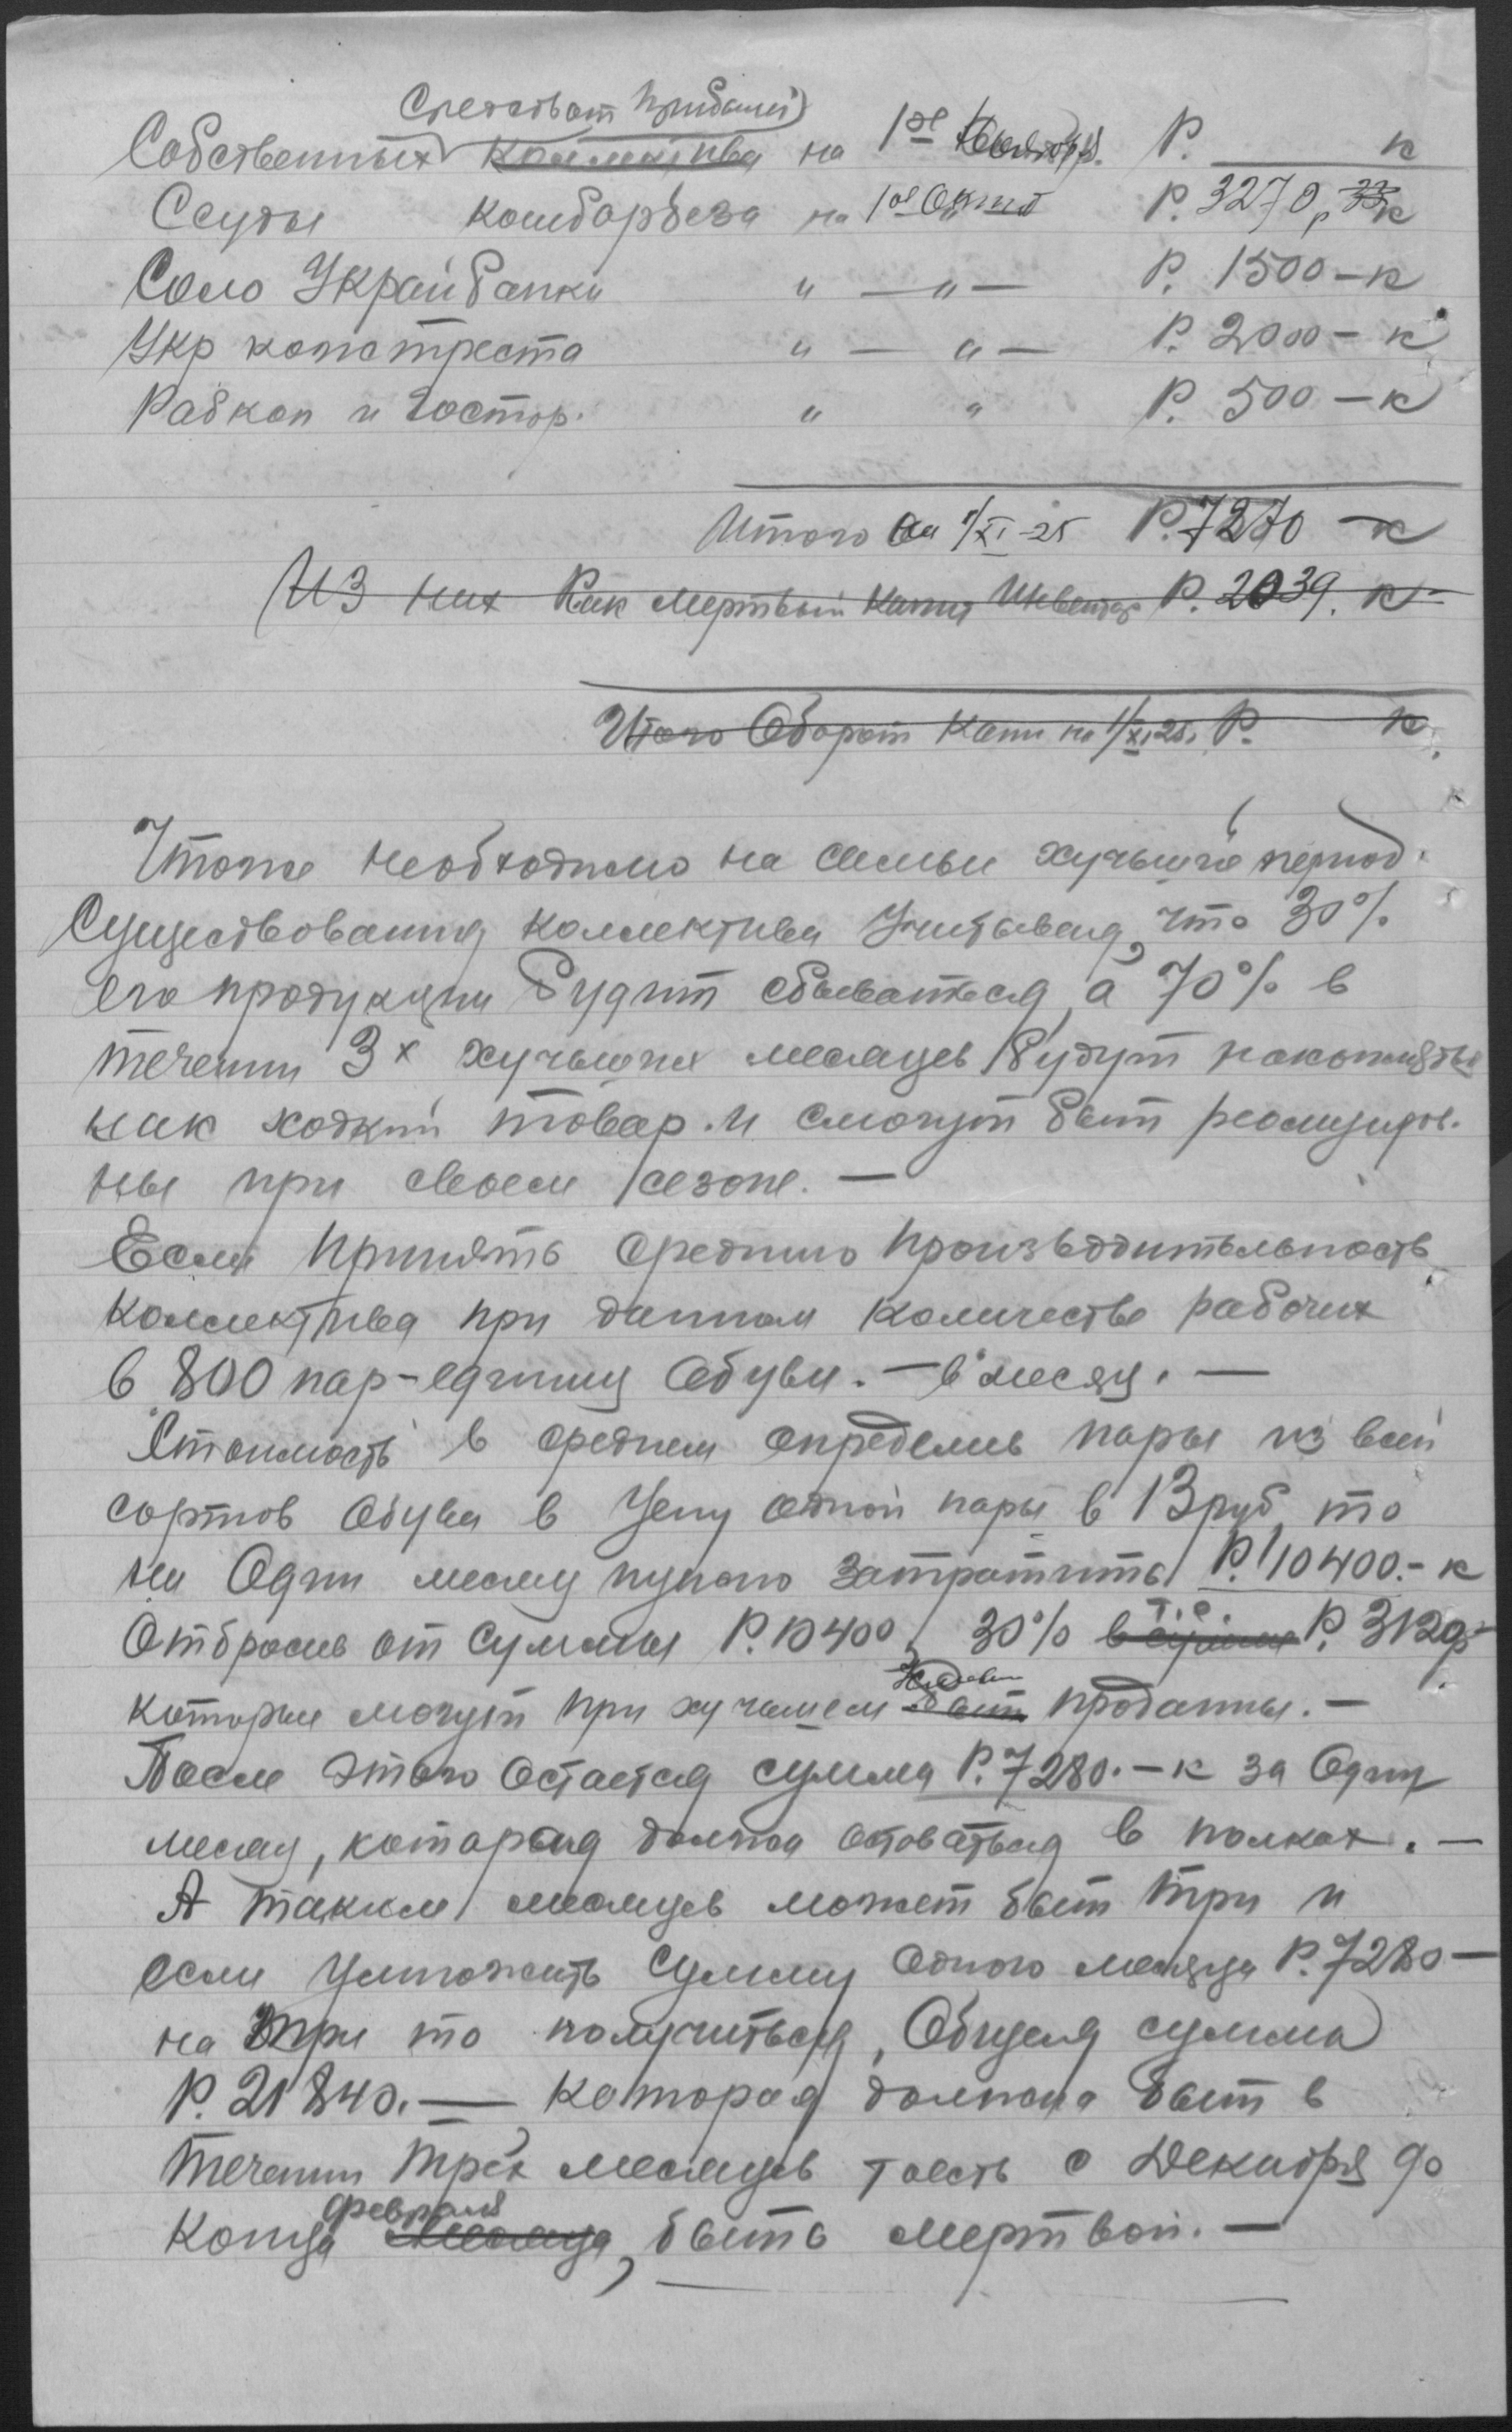 Средствам прибылей
Собственных коллектива на 1ое Октября. Р. к
Ссуды комборбеза на 1ое Октяб Р. 3270, 23 к
Соло Украйбанки " — " — Р. 1500 — к
Укр кожтреста " — " — Р. 2000 — к
Рабкоп и Гостор. " " Р. 500 — к
Итого на 1/XI-25 Р. 7270 — к
Из них Как мертвый капит Инвентар Р. 2039. к
Итого Оборот Капи на 1/XI 25. Р. к.
Итоже необходимо на самый худший период.
Существования коллектива Учитывая, что 30%
его продукции будит сбываться, а 70% в
течении 3х худших месяцев будут накоплятся
как ходкий товар. и смогут быт реализиров.
ны при своем сезоне. —
Если принять среднию произьводительность
коллектива при данном количестве рабочих
в 800 пар-единиц обуви. — в месяц. —
Стоимость в среднем определив пары из всей
сортов обуви в цену одной пары в 13 руб, то
на Один месяц нужно затратить Р. 10400.- к
Отбросив от суммы Р. 10400, 30% в сумме т.е. Р. 3120,-
которые могут при худшем быт проданны. —
После этого остается сумма Р. 7280. — к за Один
месяц, которыя должна оставаться в полках. —
А таким месяцев может быт три и
если умножить сумму одного месяца Р. 7280 —
на три то получиться, Общея сумма
Р. 21840. — которая должна быт в
течении трех месяцев тоесть с Декабря до
февраля
конца месяца, быть мертвой. —